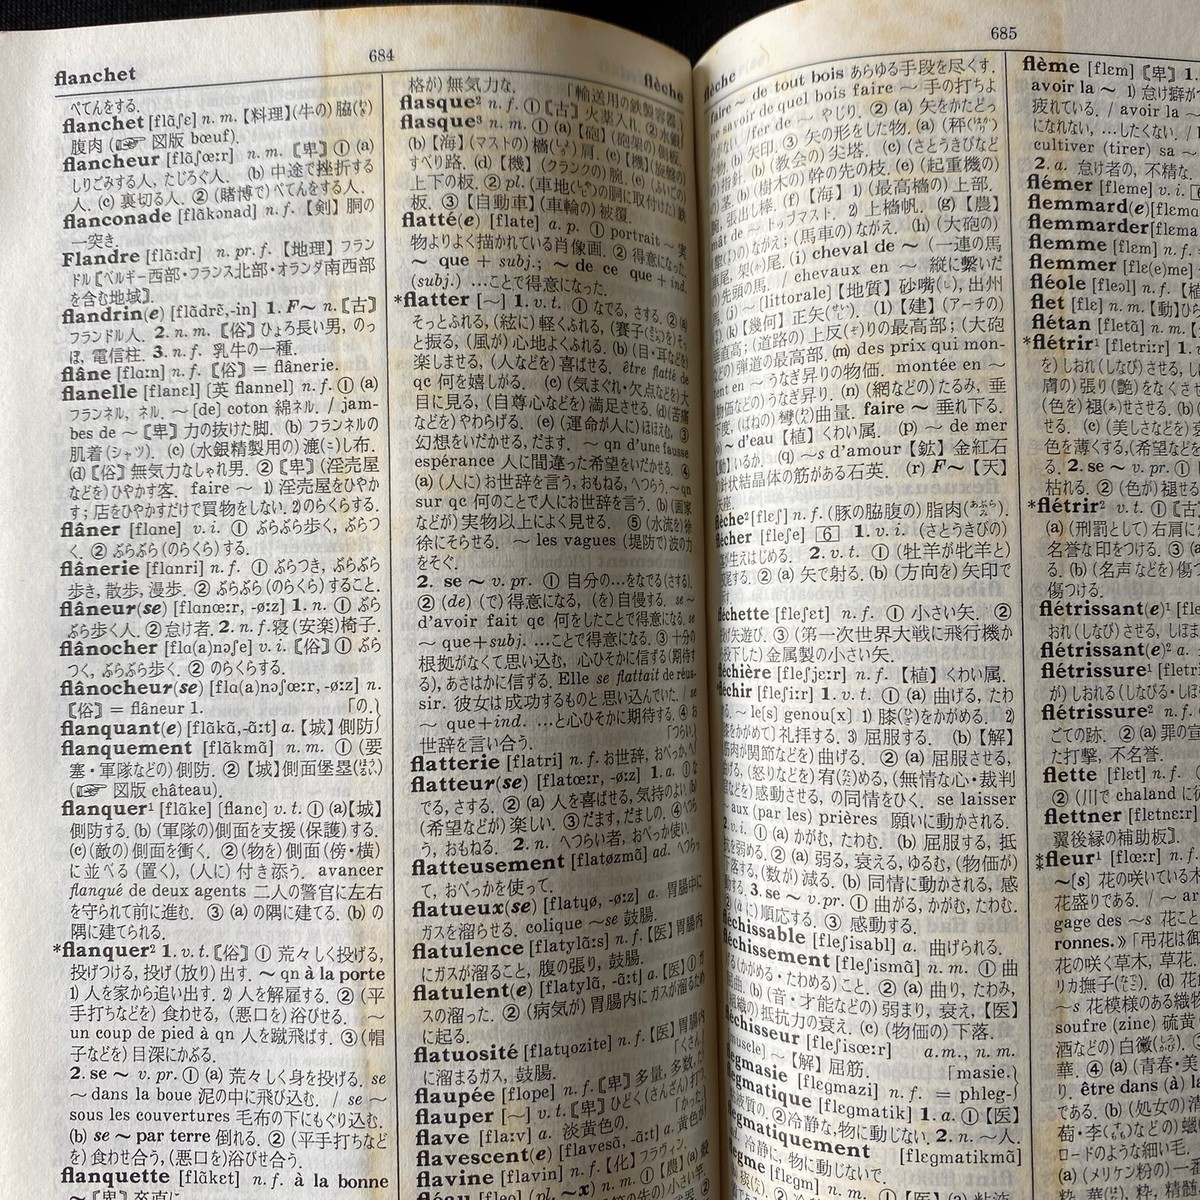 flanchet
684
flèche
べてんをする.
flanchet [flɑ̃ʃɛ] n. m. 【料理】(牛の) 脇
腹肉 (☞ 図版 bœuf).
flancheur [flɑ̃ʃœːr] n. m. 〖卑〗 ① (a)
しりごみする人, たじろぐ人. (b) 中途で挫折する
人. (c) 裏切る人. ② (賭博で) ぺてんをする人.
flanconade [flɑ̃kɔnad] n. f. 【剣】 胴の
一突き.
Flandre [flɑ̃ːdr] n. pr. f. 【地理】 フラン
ドル〖ベルギー西部・フランス北部・オランダ南西部
を含む地域〗.
flandrin(e) [flɑ̃drɛ̃, -in] 1. F~ n. 〖古〗
フランドル人. 2. n. m. 〖俗〗 ひょろ長い男, のっ
ぽ, 電信柱. 3. n. f. 乳牛の一種.
flâne [flɑːn] n. f. 〖俗〗 = flânerie.
flanelle [flanɛl] [英 flannel] n. f. ① (a)
フランネル, ネル. ~ [de] coton 綿ネル. / jam-
bes de ~ 〖卑〗 力の抜けた脚. (b) フランネルの
肌着 (シャツ). (c) (水銀精製用の) 漉し布.
(d) 〖俗〗 無気力なしゃれ男. ② 〖卑〗 (淫売屋
などを) ひやかす客. faire ~ 1) 淫売屋をひやか
す; 店をひやかすだけで買物をしない. 2) のらくらする.
flâner [flɑne] v. i. ① ぶらぶら歩く, ぶらつ
く. ② ぶらぶら (のらくら) する.
flânerie [flɑnri] n. f. ① ぶらつき, ぶらぶら
歩き, 散歩, 漫歩. ② ぶらぶら (のらくら) すること.
flâneur(se) [flɑnœːr, -øːz] 1. n. ① ぶら
ぶら歩く人. ② 怠け者. 2. n. f. 寝 (安楽) 椅子.
flânocher [flɑ(a)nɔʃe] v. i. 〖俗〗 ① ぶら
つく, ぶらぶら歩く. ② のらくらする.
flânocheur(se) [flɑ(a)nɔʃœːr, -øːz] n.
〖俗〗 = flâneur 1. 「の.
flanquant(e) [flɑ̃kɑ̃, -ɑ̃ːt] a. 【城】 側防
flanquement [flɑ̃kmɑ̃] n. m. ① (要
塞・軍隊などの) 側防. ② 【城】 側面堡塁
(☞ 図版 château).
flanquer¹ [flɑ̃ke] [flanc] v. t. ① (a) 【城】
側防する. (b) (軍隊の) 側面を支援 (保護) する.
(c) (敵の) 側面を衝く. ② (物を) 側面 (傍・横)
に並べる (置く), (人に) 付き添う. avancer
flanqué de deux agents 二人の警官に左右
を守られて前に進む. ③ (a) の隅に建てる. (b) の
隅に建てられる.
*flanquer² 1. v. t. 〖俗〗 ① 荒々しく投げる,
投げつける, 投げ (放り) 出す. ~ qn à la porte
1) 人を家から追い出す. 2) 人を解雇する. ② (平
手打ちなどを) 食わせる, (悪口を) 浴びせる. ~
un coup de pied à qn 人を蹴飛ばす. ③ (帽
子などを) 目深にかぶる.
2. se ~ v. pr. ① (a) 荒々しく身を投げる. se
~ dans la boue 泥の中に飛び込む. / se ~
sous les couvertures 毛布の下にもぐり込む.
(b) se ~ par terre 倒れる. ② (平手打ちなど
を) 食わせ合う, (悪口を) 浴びせ合う.
flanquette [flɑ̃kɛt] n. f. à la bonne
格が) 無気力な. 「輸送用の鉄製容器.
flasque² n. f. ① 〖古〗 火薬入れ. ② 水銀
flasque³ n. m. ① (a) 【砲】 (砲架の) 側板.
(b) 【海】 (マストの) 檣肩. (c) 【機】 (旋盤の)
すべり路. (d) 【機】 (クランクの) 腕. (e) (ふいごの)
上下の板. ② pl. (車地の胴に取付けた) 鉄
板. ③ 【自動車】 (車輪の) 被覆.
flatté(e) [flate] a. p. ① portrait ~ 実
物よりよく描かれている肖像画. ② 得意になった.
~ que + subj.; ~ de ce que + ind.
(subj.) …ことで得意になった.
*flatter [~] 1. v. t. ① なでる, さする. ② (a)
そっとふれる, (絃に) 軽くふれる, (賽子を) そっ
と振る, (風が) 心地よくふれる. (b) (目・耳などを)
楽しませる, (人などを) 喜ばせる. être flatté de
qc 何を嬉しがる. (c) (気まぐれ・欠点などを) 大
目に見る, (自尊心などを) 満足させる. (d) (苦痛
などを) やわらげる. (e) (運命が人に) ほほえむ. ③
幻想をいだかせる, だます. ~ qn d'une fausse
espérance 人に間違った希望をいだかせる. ④
(a) (人に) お世辞を言う, おもねる, へつらう. ~ qn
sur qc 何のことで人にお世辞を言う. (b) (画家
などが) 実物以上によく見せる. ⑤ (水流を) 徐
徐にそらせる. ~ les vagues (堤防で) 波の力
をそぐ.
2. se ~ v. pr. ① 自分の…をなでる (さする).
② (de) (で) 得意になる, (を) 自慢する. se ~
d'avoir fait qc 何をしたことで得意になる. se
~ que + subj. …ことで得意になる. ③ 十分の
根拠がなくて思い込む, 心ひそかに信ずる (期待す
る), あさはかに信ずる. Elle se flattait de réus-
sir. 彼女は成功するものと思い込んでいた. / se
~ que + ind. …と心ひそかに期待する. ④ お
世辞を言い合う. 「つらい.
flatterie [flatri] n. f. お世辞, おべっか, へ
flatteur(se) [flatœːr, -øːz] 1. a. ① な
でる, さする. ② (a) 人を喜ばせる, 気持のよい. (b)
(希望などが) 楽しい. ③ だます, だましの. ④ へつら
う, おもねる. 2. n. へつらい者, おべっか使い.
flatteusement [flatøzmɑ̃] ad. へつらっ
て, おべっかを使って.
flatueux(se) [flatɥø, -øːz] a. 胃腸中に
ガスを溜らせる. colique ~se 鼓腸.
flatulence [flatylɑ̃ːs] n. f. 【医】 胃腸内
にガスが溜ること, 腹の張り, 鼓腸.
flatulent(e) [flatylɑ̃, -ɑ̃ːt] a. 【医】 ① ガ
スの溜った. ② (病気が) 胃腸内にガスが溜るため
に起る.
flatuosité [flatɥozite] n. f. 【医】 胃腸内
に溜まるガス, 鼓腸. 「くさん.
flaupée [flope] n. f. 〖卑〗 多量, 多数, た
flauper [~] v. t. 〖卑〗 ひどく (さんざん) 打つ.
flave [flaːv] a. 淡黄色の. 「かった.
flavescent(e) [flavesɑ̃, -ɑ̃ːt] a. 黄色が
flavine [flavin] n. f. 【化】 フラヴィン.
685
flèche
faire ~ de tout bois あらゆる手段を尽くす.
ne savoir de quel bois faire ~ 手の打ちよ
/ fer de ~ やじり. ② (a) 矢をかたどっ
(b) 矢印. ③ 矢の形をした物. (a) (秤
の) 指針. (b) (教会の) 尖塔. (c) (さとうきびなど
の) 茎. (d) (樹木の) 幹の先の枝. (e) (起重機の)
腕, 張出し棒. (f) 【海】 1) (最高檣の) 上部.
mât de ~ トップマスト. 2) 上檣帆. (g) 【農】
(犂の) ながえ; (馬車の) ながえ. (h) (大砲の)
車尾, 架尾. (i) cheval de ~ (一連の馬
の) 先頭の馬. / chevaux en ~ 縦に繋いだ
馬. (j) ~ [littorale] 【地質】 砂嘴, 出州
(k) 【幾何】 正矢. (l) 【建】 (アーチの)
垂直高; (道路の) 上反りの最高部; (大砲
などの) 弾道の最高部. (m) des prix qui mon-
tent en ~ うなぎ昇りの物価. montée en ~
物価などのうなぎ昇り. (n) (網などの) たるみ, 垂
下度, (ばねの) 彎曲量. faire ~ 垂れ下る.
~ d'eau 【植】 くわい属. (p) ~ de mer
いるか. (q) ~s d'amour 【鉱】 金紅石
針状結晶体の筋がある石英. (r) F~ 【天】
矢座.
flèche² [flɛʃ] n. f. (豚の脇腹の) 脂肉.
flécher [fleʃe] 6 1. v. i. (さとうきびの)
が生えはじめる. 2. v. t. ① (牡羊が牝羊と)
交尾する. ② (a) 矢で射る. (b) (方向を) 矢印で
示す.
fléchette [fleʃɛt] n. f. ① 小さい矢. ②
投げ矢遊び. ③ (第一次世界大戦に飛行機か
ら投下した) 金属製の小さい矢.
fléchière [fleʃjɛːr] n. f. 【植】 くわい属.
*fléchir [fleʃiːr] 1. v. t. ① (a) 曲げる, たわ
める. ~ le[s] genou[x] 1) 膝をかがめる. 2)
(膝をかがめて) 礼拝する. 3) 屈服する. (b) 【解】
(筋肉が関節などを) 曲げる. ② (a) 屈服させる,
曲げる, (怒りなどを) 宥める, (無情な心・裁判
官などを) 感動させる, の同情をひく. se laisser
~ aux (par les) prières 願いに動かされる.
2. v. i. ① (a) かがむ, たわむ. (b) 屈服する, 抵
抗を弱める. ② (a) 弱る, 衰える, ゆるむ, (物価が)
下落する, (数が) 減る. (b) 同情に動かされる, 感
動する. 3. se ~ v. pr. ① 曲がる, かがむ, たわむ.
② (à に) 順応する. ③ 感動する.
fléchissable [fleʃisabl] a. 曲げられる.
fléchissement [fleʃismɑ̃] n. m. ① 曲
げる (かがめる・たわめる) こと. ② (a) 曲り, たわみ,
屈曲. (b) (音・才能などの) 弱まり, 衰え, 【医】
組織の) 抵抗力の衰え. (c) (物価の) 下落.
fléchisseur [fleʃisœːr] a. m., n. m.
(muscle) ~ 【解】 屈筋. 「masie.
flegmasie [flɛgmazi] n. f. = phleg-
flegmatique [flɛgmatik] 1. a. ① 【医】
粘液質の. ② 冷静な, 物に動じない. 2. n. ~人.
flegmatiquement [flɛgmatikmɑ̃]
ad. 冷静に, 物に動じないで.
flegme [flɛgm] n. m. ① 【医】 (a) 粘液
flème [flɛm] 〖卑〗 1.
avoir la ~ 1) 怠け癖が
疲れている. / avoir la ~
になれない, …したくない. /
cultiver (tirer) sa ~
2. a. 怠け者の, 不精な.
flémer [fleme] v. i.
flemmard(e) [flɛma
flemmarder [flɛma
flemme [flɛm] n. f.
flemmer [flɛ(e)me]
fléole [fleɔl] n. f. 【植
flet [flɛ] n. m. 【動】 ひら
flétan [fletɑ̃] n. m.
*flétrir¹ [fletriːr] 1.
を) しおれ (しなび) させる, し
膚の) 張り (艶) をなくさせ
(色を) 褪せさせる. (b)
せる. (c) (美しさなどを)
色を薄くする, (希望などを
る. 2. se ~ v. pr. ①
枯れる. ② (色が) 褪せる
*flétrir² v. t. ① 〖古〗
(a) (刑罰として) 右肩に
名誉な印をつける. ③ (a)
る. (b) (名声などを) 傷つ
傷つける.
flétrissant(e)¹ [fle
おれ (しなび) させる, しぼま
flétrissant(e)² a.
flétrissure¹ [fletri
が) しおれる (しなびる・しぼ
flétrissure² n. f.
ごての跡. ② (a) 罪の宣
た打撃, 不名誉.
flette [flɛt] n. f. ①
② (川で chaland に
flettner [flɛtnɛːr]
翼後縁の補助板〗.
*fleur¹ [flœːr] n. f.
~[s] 花の咲いている木
花盛りである. / ~ ar
gage des ~s 花こと
ronnes.》「弔花は御
花の咲く草木, 草花.
リカ撫子. (d) 花
~s 花模様のある織物
soufre (zinc) 硫黄
酒などの) 白黴. ③
華. ④ (a) (青春・美
り. être dans (à) la
である. (b) (処女の) 清
萄・李などの) 蠟
ロードのような細い毛.
(a) (メリケン粉の) 一番